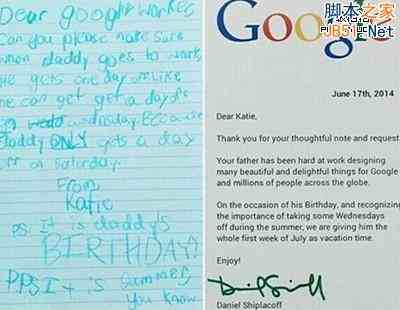 Dear google worker
Can you please make sure
when daddy goes to work
He gets one day off like
he can get get a day off
on wednesday Because
daddy ONLY gets a day
off on Saturday.
From
Katie
P.S. It is daddy's
BIRTHDAY!
PPS It is summer
You know
Google
脚本之家
JB51.Net
June 17th, 2014
Dear Katie,
Thank you for your thoughtful note and request
Your father has been hard at work designing
many beautiful and delightful things for Google
and millions of people across the globe.
On the occasion of his Birthday, and recognizing
the importance of taking some Wednesdays
off during the summer, we are giving him the
whole first week of July as vacation time.
Enjoy!
Daniel Shiplacoff